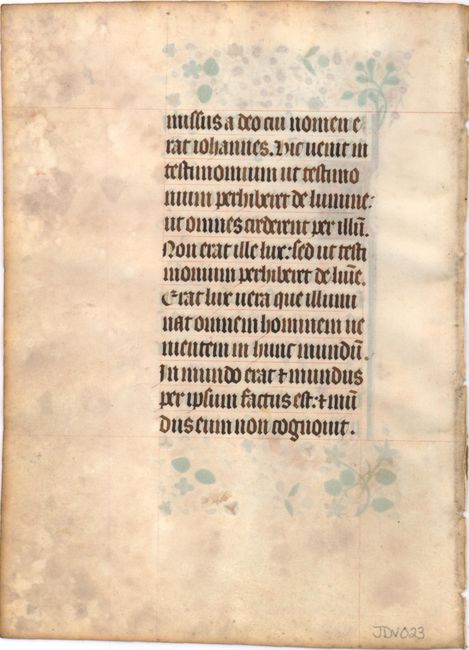 missus a deo cui nomen e
rat iohannes. Hic venit in
testimonium ut testimo
nium perhiberet de lumine:
ut omnes crederent per illū.
Non erat ille lux: sed ut testi
monium perhiberet de lumīe.
Erat lux uera que illumi
nat omnem hominem ue
nientem in hunc mundū.
In mundo erat ⁊ mundus
per ipsum factus est: ⁊ mū
dus eum non cognouit.
JDV023